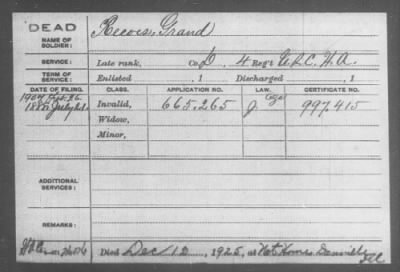 DEAD
NAME OF SOLDIER: Reeves, Grand
SERVICE: Late rank, Co. D, 4 Reg't U.S.C. H.A.
TERM OF SERVICE: Enlisted , 1 Discharged , 1
DATE OF FILING. CLASS. APPLICATION NO. LAW. CERTIFICATE NO.
1907
1888 July 21. Invalid, 665.265 J. Age 997.415
Widow,
Minor,
ADDITIONAL SERVICES:
REMARKS:
Died Dec 12, 1925, at Nat Home Danville Ill